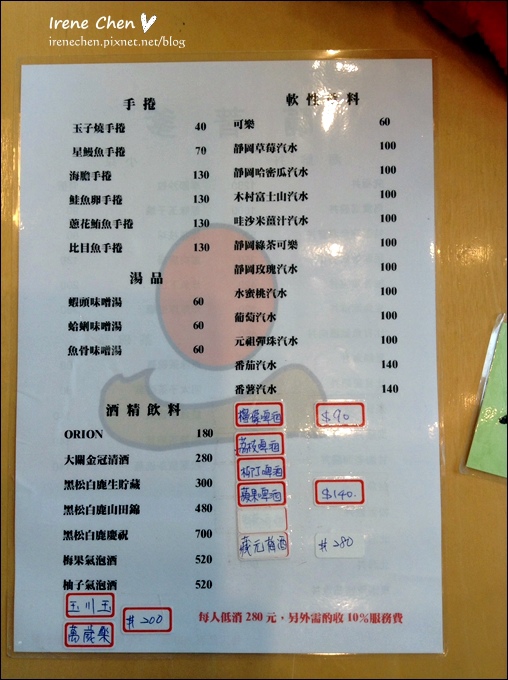 Irene Chen
irenechen.pixnet.net/blog
手捲
玉子燒手捲 40
星鰻魚手捲 70
海膽手捲 130
鮭魚卵手捲 130
蔥花鮪魚手捲 130
比目魚手捲 130
湯品
蝦頭味噌湯 60
蛤蜊味噌湯 60
魚骨味噌湯 60
酒精飲料
ORION 180
大關金冠清酒 280
黑松白鹿生貯藏 300
黑松白鹿山田錦 480
黑松白鹿慶祝 700
梅果氣泡酒 520
柚子氣泡酒 520
玉川王
萬歲樂
#200
軟性 料
可樂 60
靜岡草莓汽水 100
靜岡哈密瓜汽水 100
木村富士山汽水 100
哇沙米薑汁汽水 100
靜岡綠茶可樂 100
靜岡玫瑰汽水 100
水蜜桃汽水 100
葡萄汽水 100
元祖彈珠汽水 100
番茄汽水 140
番薯汽水 140
啤酒 $90
荔枝啤酒
柳丁啤酒
蘋果啤酒 $140.
藏元梅酒 #280
每人低消 280 元，另外需酌收 10%服務費